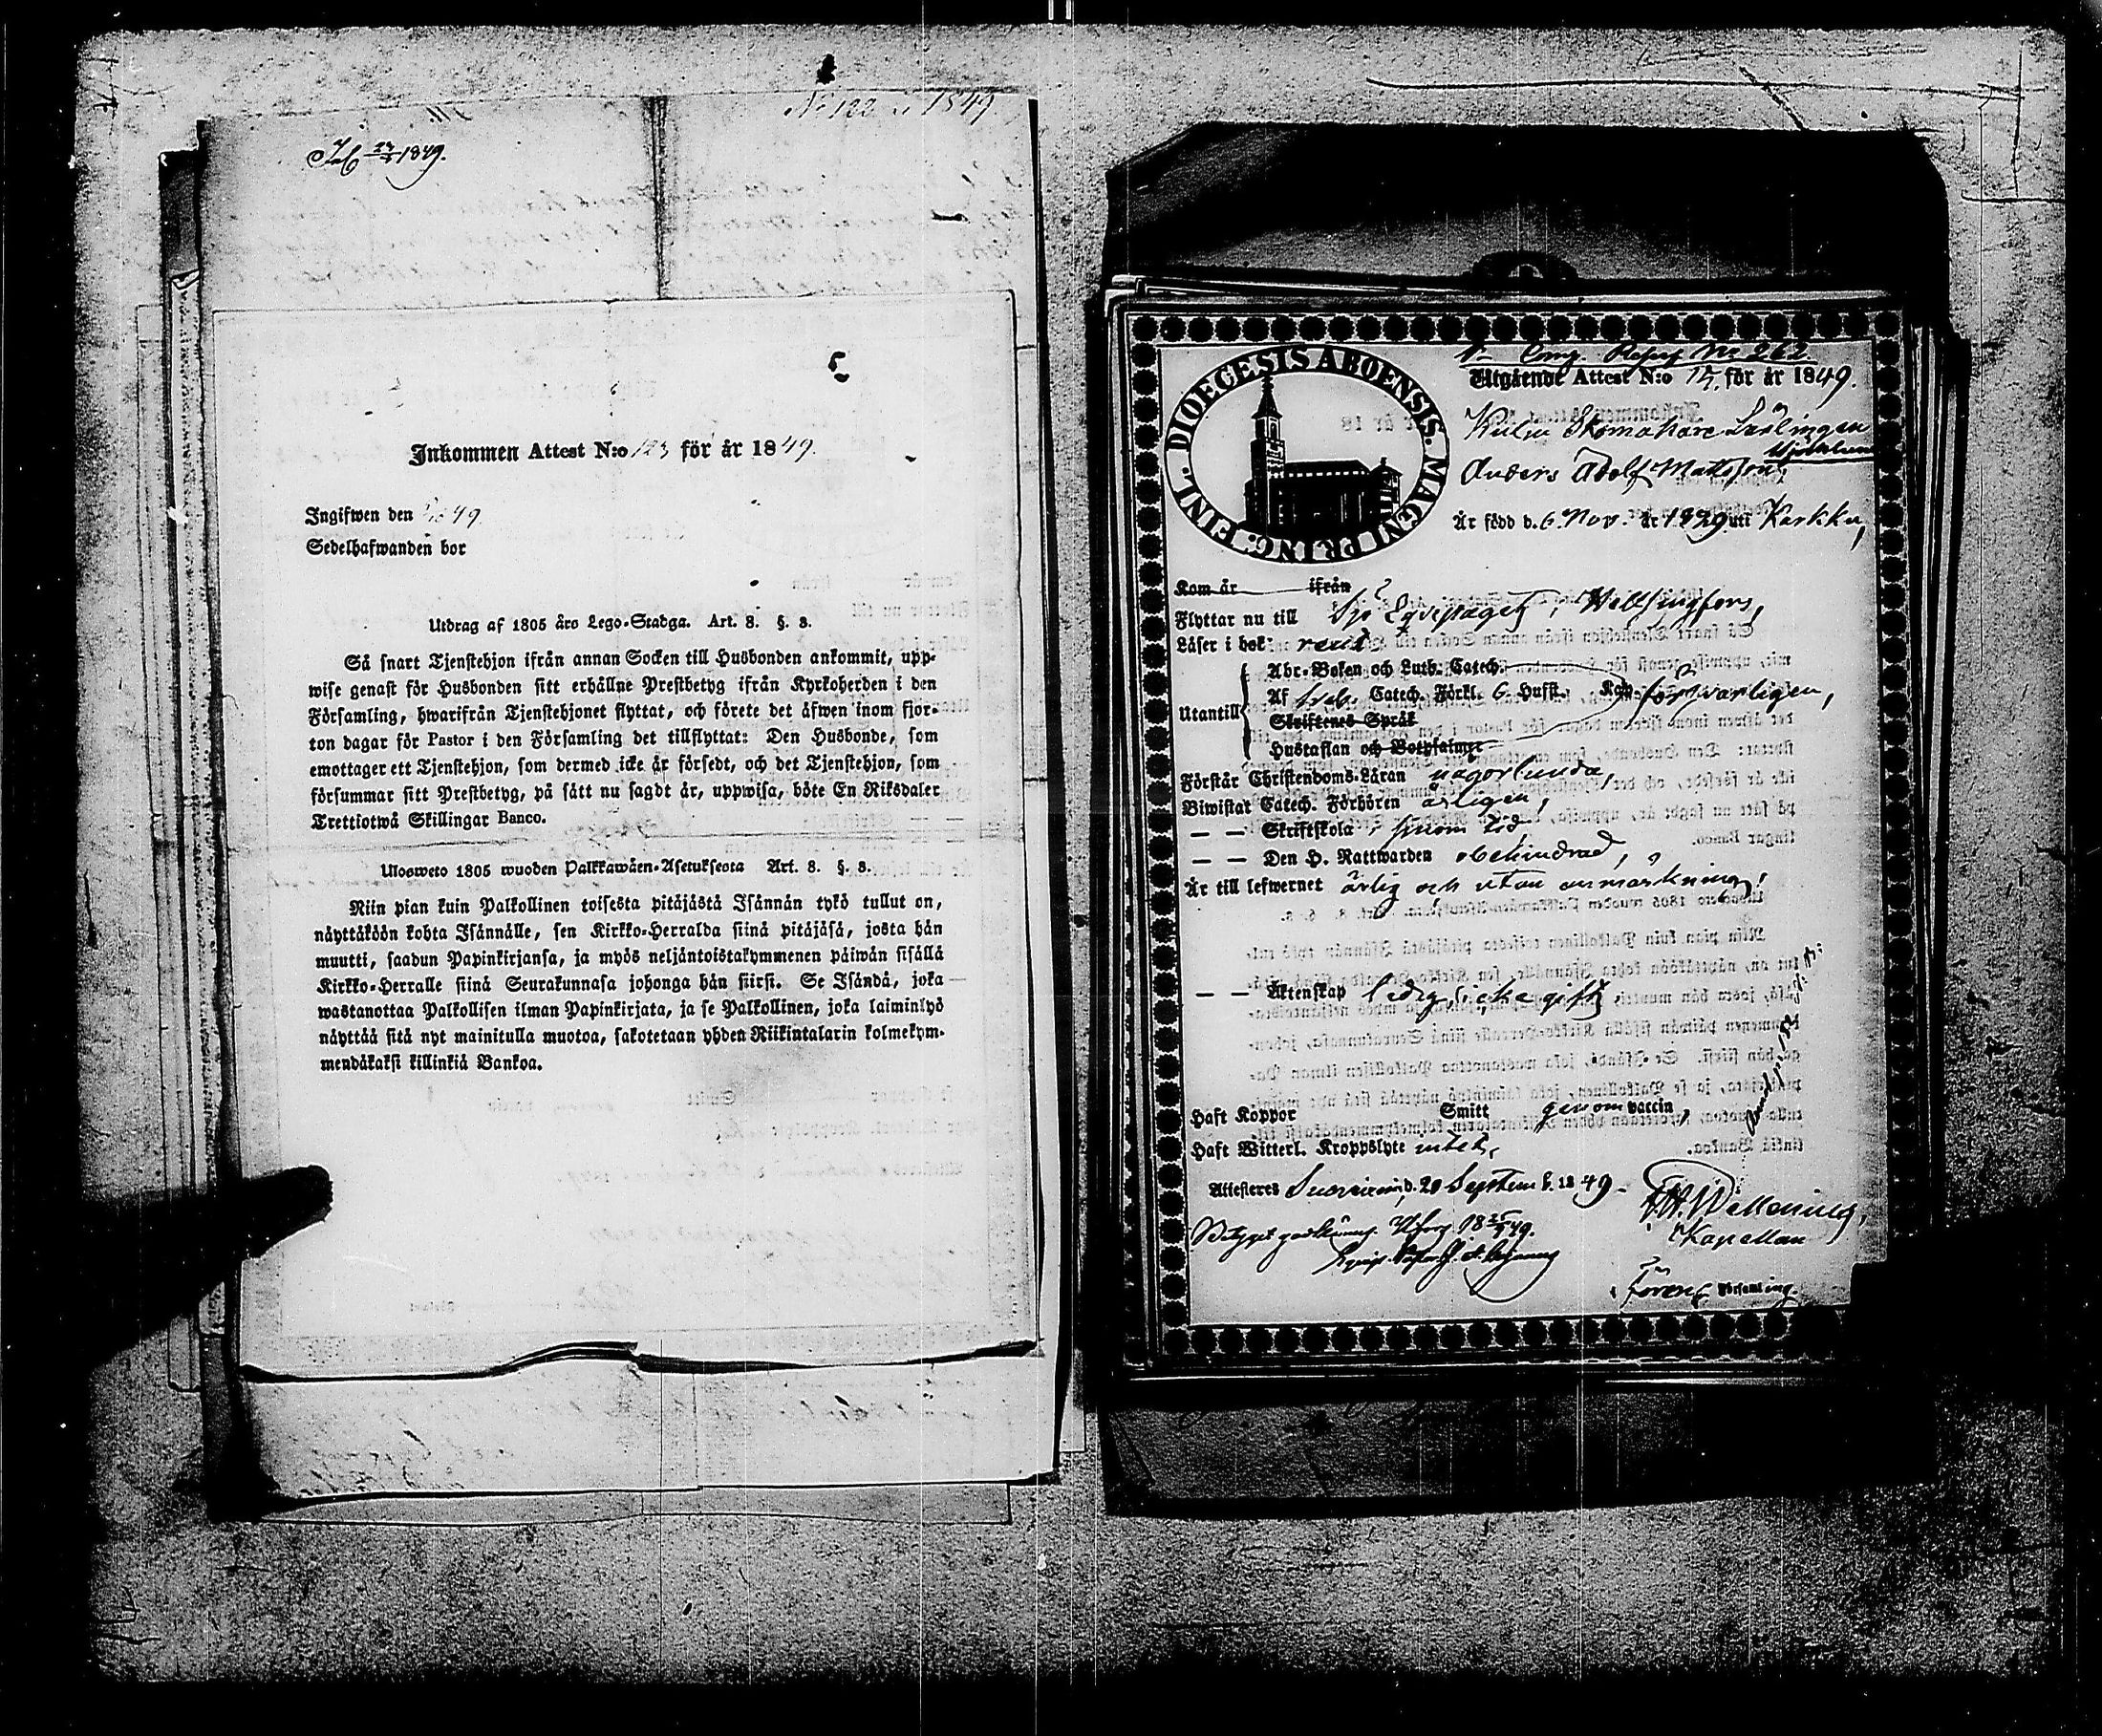 N:o 122 1849.
1849.
Inkommen Attest N:o 123 för år 1849.
Ingifwen den 49.
Sedelhafwanden bor
Utdrag af 1805 års Lego-Stadga. Art. 8. §. 3.
Så snart Tjenstehjon ifrån annan Socken till Husbonden ankommit, upp-
wise genast för Husbonden sitt erhållne Prestbetyg ifrån Kyrkoherden i den
Församling, hwarifrån Tjenstehjonet flyttat, och förete det äfwen inom fjor-
ton dagar för Pastor i den Församling det tillflyttat: Den Husbonde, som
emottager ett Tjenstehjon, som dermed icke är försedt, och det Tjenstehjon, som
försummar sitt Prestbetyg, på sätt nu sagdt är, uppwisa, böte En Riksdaler
Trettiotwå Skillingar Banco.
Ulosweto 1805 wuoden Palkkawäen-Asetuksesta Art. 8. §. 3.
Niin pian kuin Palkollinen toisesta pitäjästä Isännän tykö tullut on,
näyttäköön kohta Isännälle, sen Kirkko-Herralda siinä pitäjäsä, josta hän
muutti, saadun Papinkirjansa, ja myös neljäntoistakymmenen päiwän sisällä
Kirkko-Herralle siinä Seurakunnasa johonga hän siirsi. Se Isändä, joka
wastanottaa Palkollisen ilman Papinkirjata, ja se Palkollinen, joka laiminlyö
näyttää sitä nyt mainitulla muotoa, sakotetaan yhden Riikintalarin kolmekym-
mendäkaksi killinkiä Bankoa.
DIOECESIS ABOENSIS. MAGNI PRING. FINL.
No 262
Utgående Attest N:o 17. för år 1849.
Skomakare Lärlingen
Anders Adolf Mattsson
Är född d. 6. Nov. år 1829 uti Karkku,
Kom år ifrån
Flyttar nu till Sjö Equipaget i Helsingfors,
Läser i bok rent
Abc-Boken och Luth. Catech.
Af Sveb. Catech. Förkl. 6. Hufst. Kap. försvarligen,
Utantill
Skriftenes Språk
Hustaflan och Botpsalmer
Förstår Christendoms-Läran någorlunda,
Biwistat Catech. Förhören årligen,
— — Skriftskola i sinom tid,
— — Den H. Nattwarden obehindrad,
Är till lefwernet ärlig och utan anmärkning,
— — Äktenskap ledig, icke gift,
Haft Koppor Smitt genom vaccin,
Haft Witterl. Kroppslyte intet,
Attesteras Suoniemi d. 20 Septemb. 1849.
Betyget godkännes. Hfors 1849.
Kapellan
i Församling.